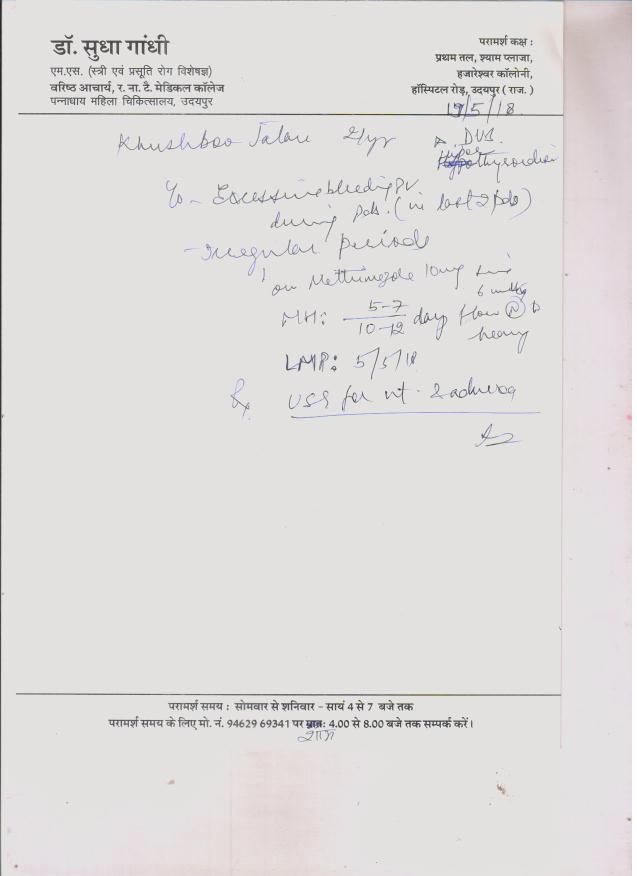 डॉ. सुधा गांधी
एम.एस. (स्त्री एवं प्रसूति रोग विशेषज्ञ)
वरिष्ठ आचार्य, र. ना. टै. मेडिकल कॉलेज
पन्नाधाय महिला चिकित्सालय, उदयपुर
परामर्श कक्ष :
प्रथम तल, श्याम प्लाजा,
हजारेश्वर कॉलोनी,
हॉस्पिटल रोड़, उदयपुर ( राज. )
19/5/18
Khushboo
DUB
Hyper
thyroidism
Excessive bleeding PV
during pds. (in last 2 pds)
- Irregular periods
on Methimazole 10mg since
6 mths
MH: 5-7
10-12 days flow N to
heavy
LMP: 5/5/18
Rx USG for ut. & adnexa
परामर्श समय : सोमवार से शनिवार – सायं 4 से 7 बजे तक
परामर्श समय के लिए मो. नं. 94629 69341 पर प्रातः 4.00 से 8.00 बजे तक सम्पर्क करें।
शाम